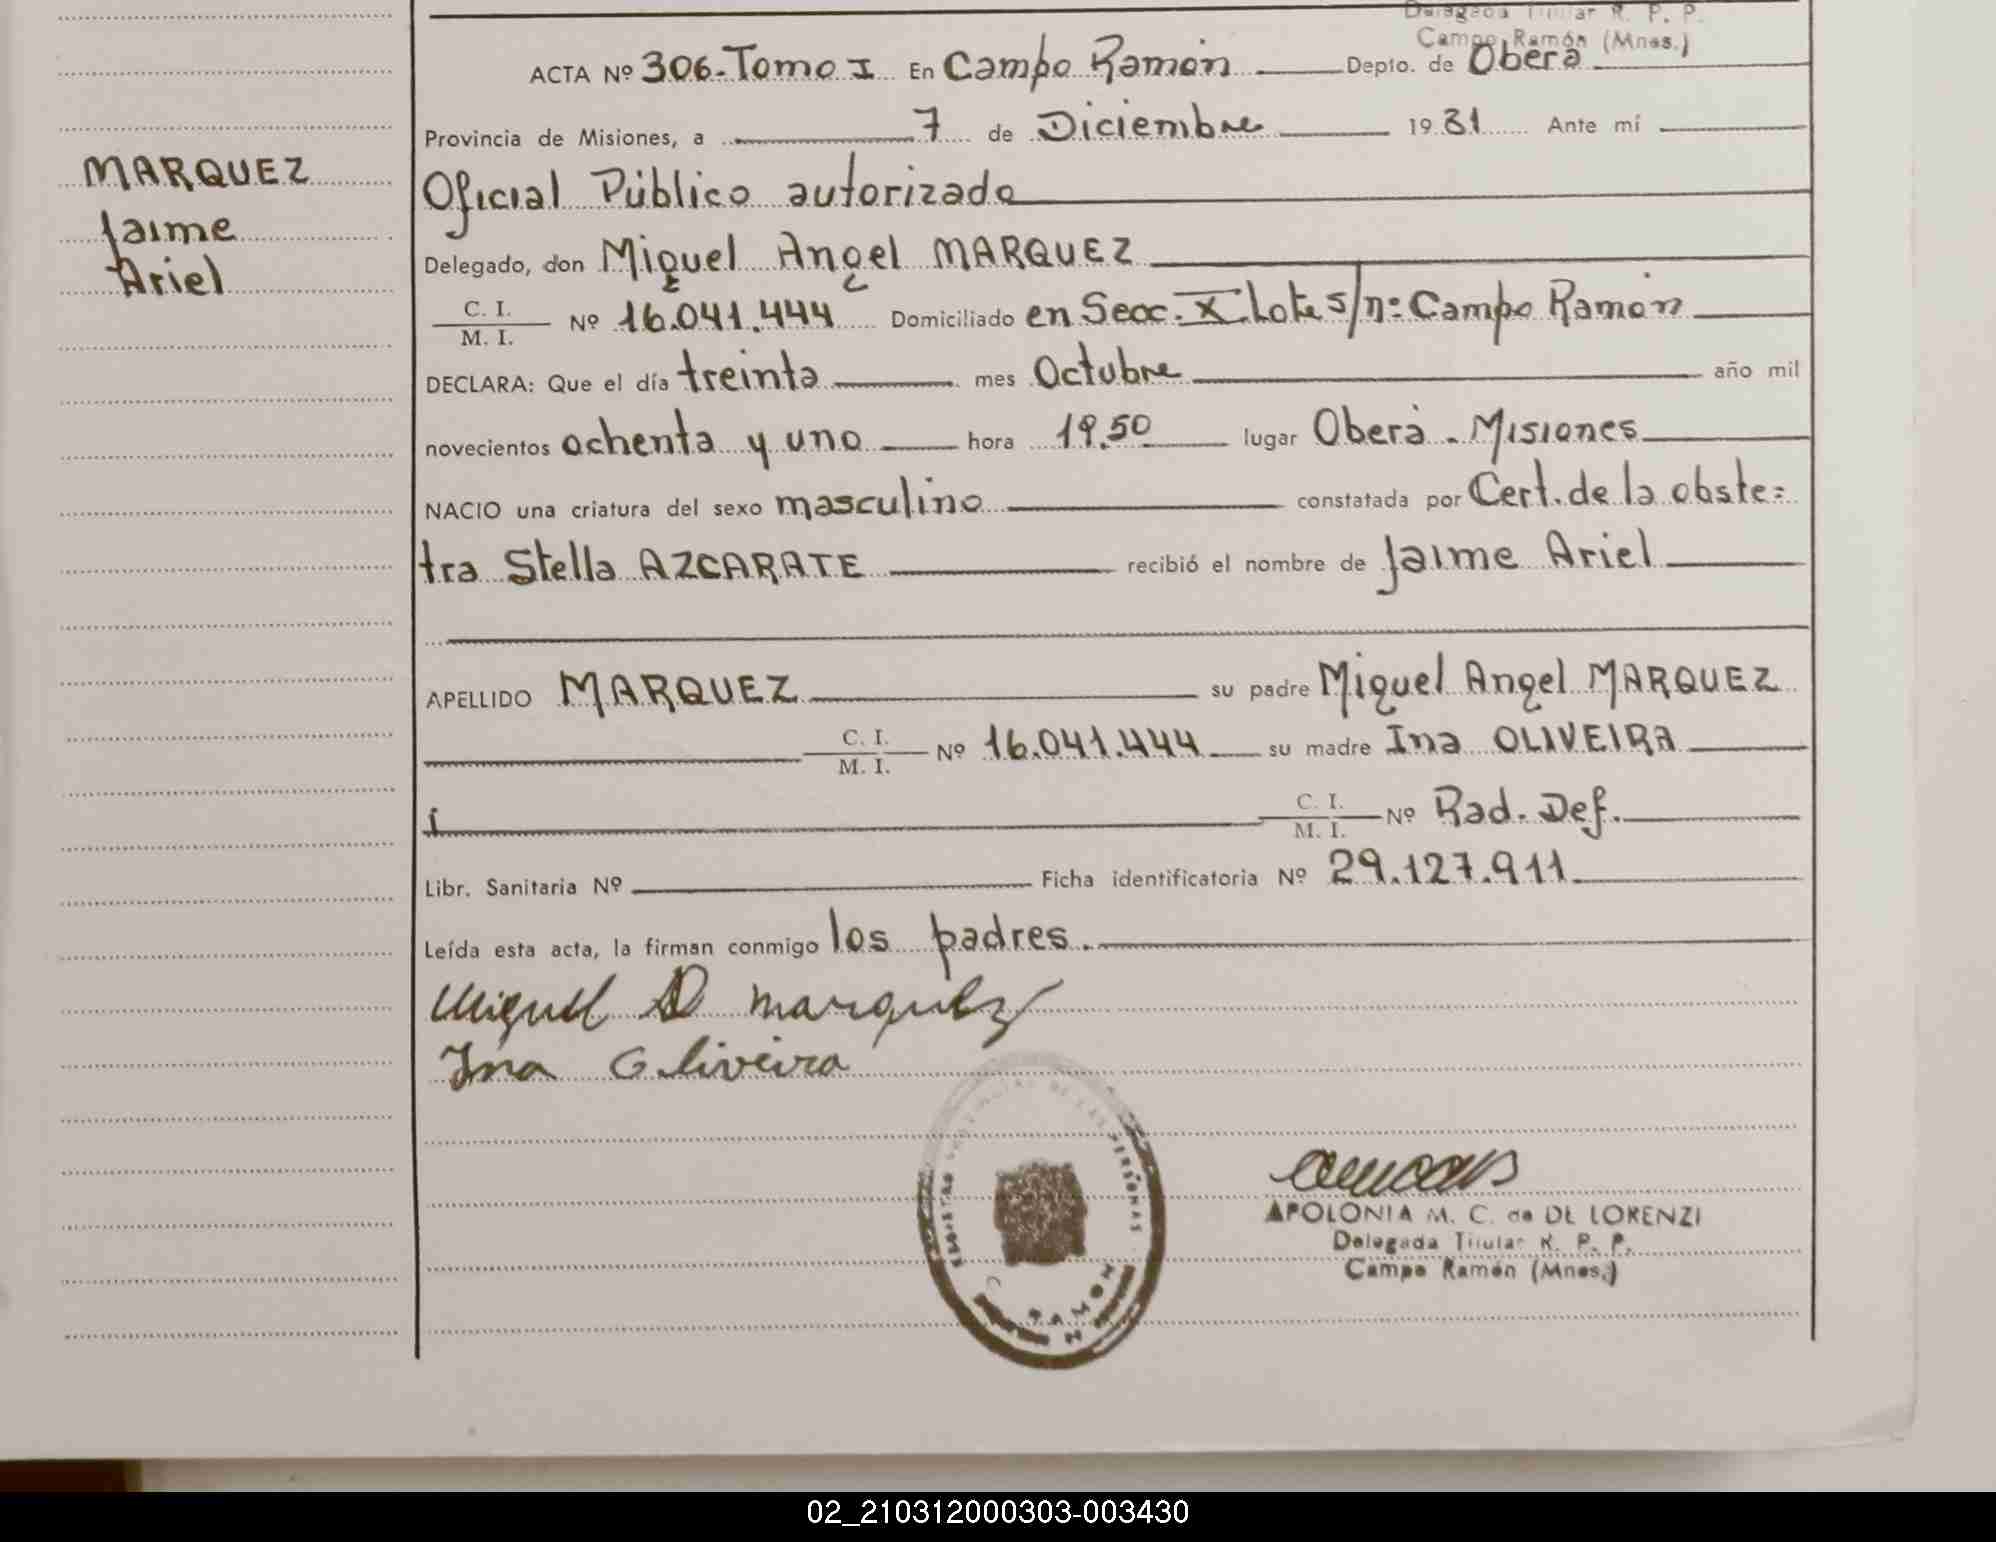 Delegada Titular R. P. P.
Campo Ramón (Mnes.)
ACTA Nº 306-Tomo I En Campo Ramón Depto. de Oberá
Provincia de Misiones, a 7 de Diciembre 1981 Ante mí
MARQUEZ
Jaime
Ariel
Oficial Público autorizado
Delegado, don Miguel Angel MARQUEZ
C. I.
M. I. Nº 16.041.444 Domiciliado en Secc. X Lote s/n: Campo Ramón
DECLARA: Que el día treinta mes Octubre año mil
novecientos ochenta y uno hora 19.50 lugar Oberá. Misiones
NACIO una criatura del sexo masculino constatada por Cert. de la obste=
tra Stella AZCARATE recibió el nombre de Jaime Ariel
APELLIDO MARQUEZ su padre Miguel Angel MARQUEZ
C. I.
M. I. Nº 16.041.444 su madre Ina OLIVEIRA
C. I.
M. I. Nº Rad. Def.
Libr. Sanitaria Nº Ficha identificatoria Nº 29.127.911
Leída esta acta, la firman conmigo los padres.
Miguel A Marquez
Ina Oliveira
DE LAS PERSONAS
RAMON
APOLONIA M. C. de DE LORENZI
Delegada Titular R. P. P.
Campo Ramón (Mnes.)
02_210312000303-003430